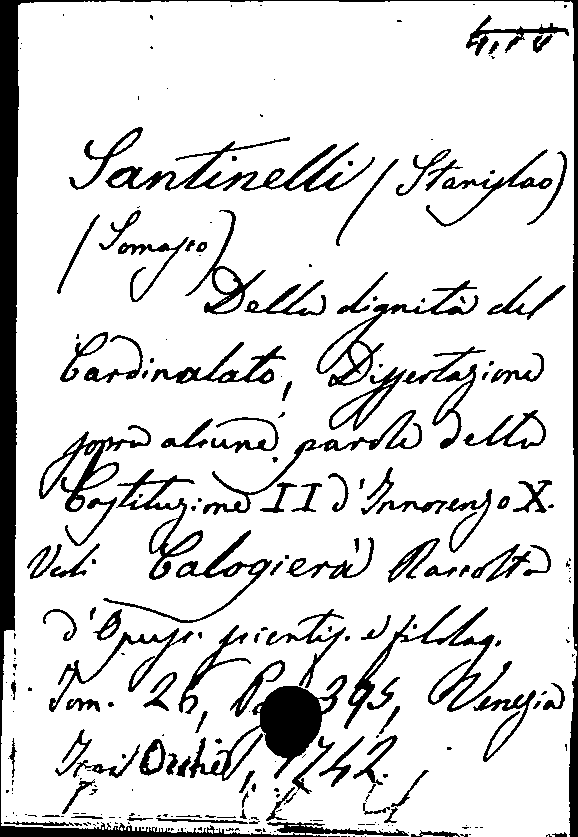 Santinelli (Stanislao)
(Somasco)
Della dignità del
Cardinalato, Dissertazione
sopra alcune parole della
Costituzione II d'Innocenzo X.
Vedi Calogierà Raccolta
d'Opusc. scientif. e filolog.
Tom. 26, 395, Venezia
Occhi, 1742.